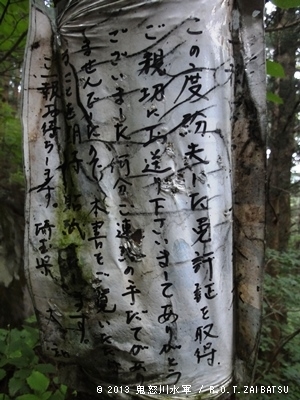 この度紛失した免許証を取得、
ご親切にお送り下さいましてありがとう
ございました。何分ご連絡の手だてがあり
ませんでしたので、本書をご覧いただ
ご一報お待ちします。埼玉県
© 2013 鬼怒川水軍 / R.O.T.ZAIBATSU